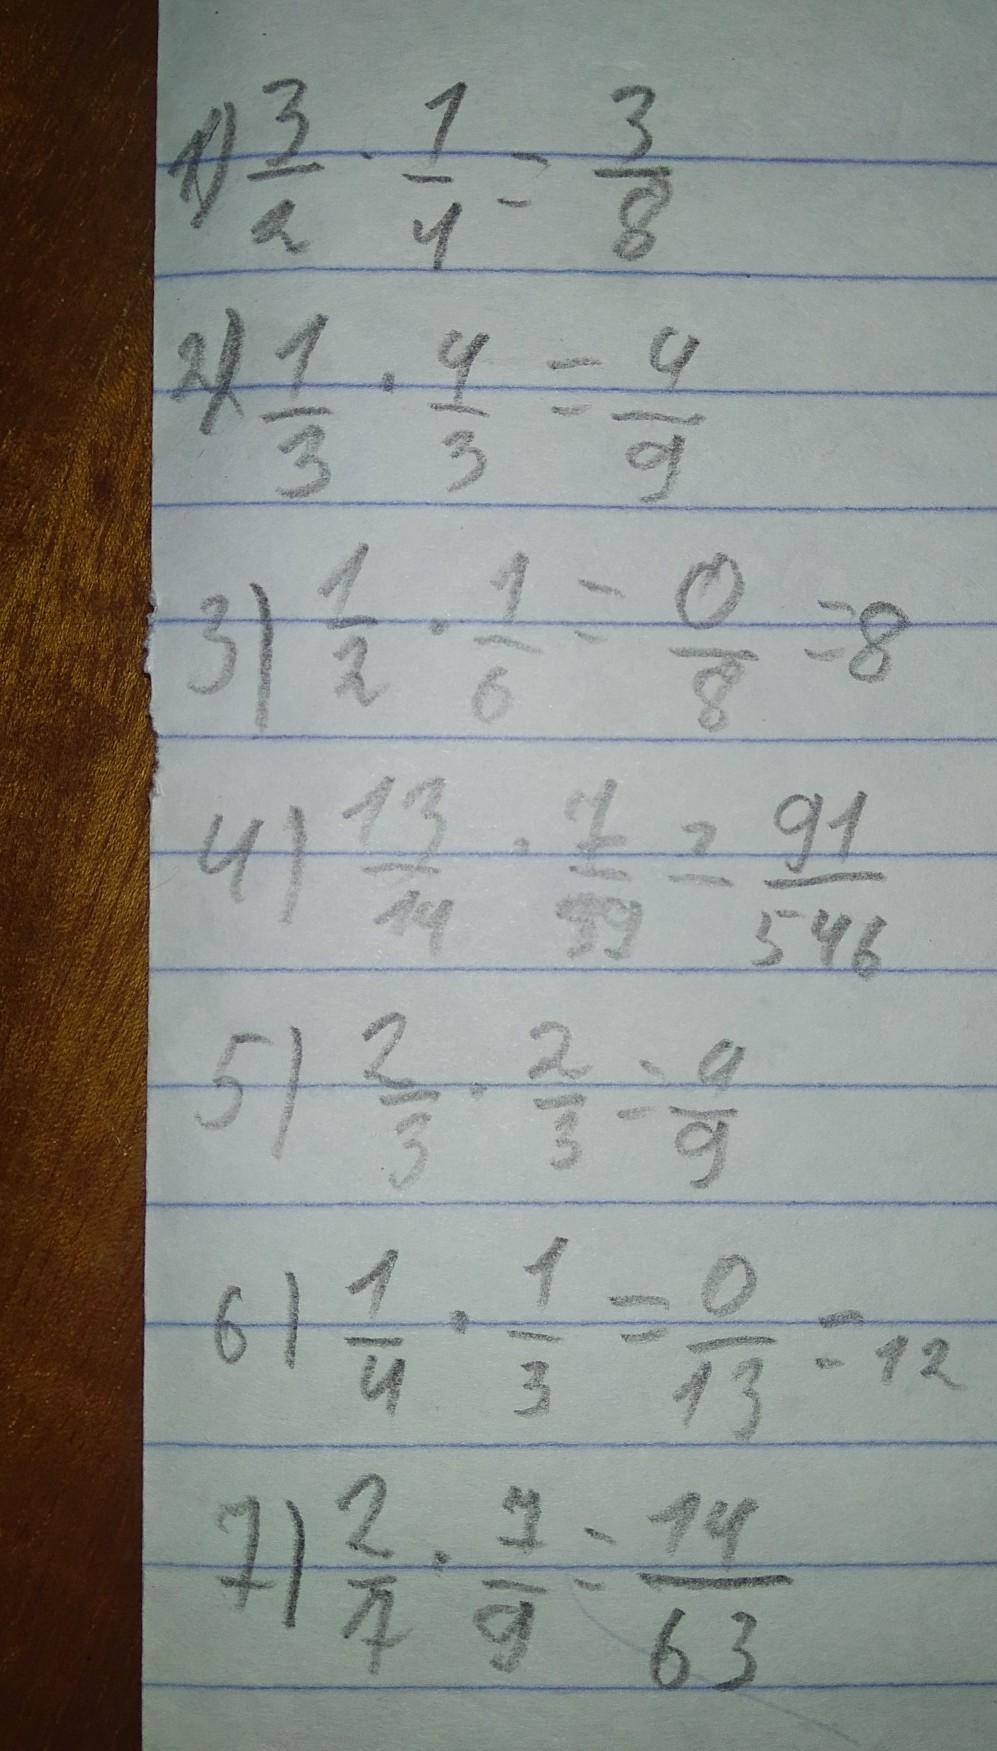 1) 3/2 · 1/4 = 3/8
2) 1/3 · 4/3 = 4/9
3) 1/2 · 1/6 = 0/8 = 8
4) 13/14 · 7/39 = 91/546
5) 2/3 · 2/3 = 4/9
6) 1/4 · 1/3 = 0/13 = 12
7) 2/7 · 7/9 = 14/63